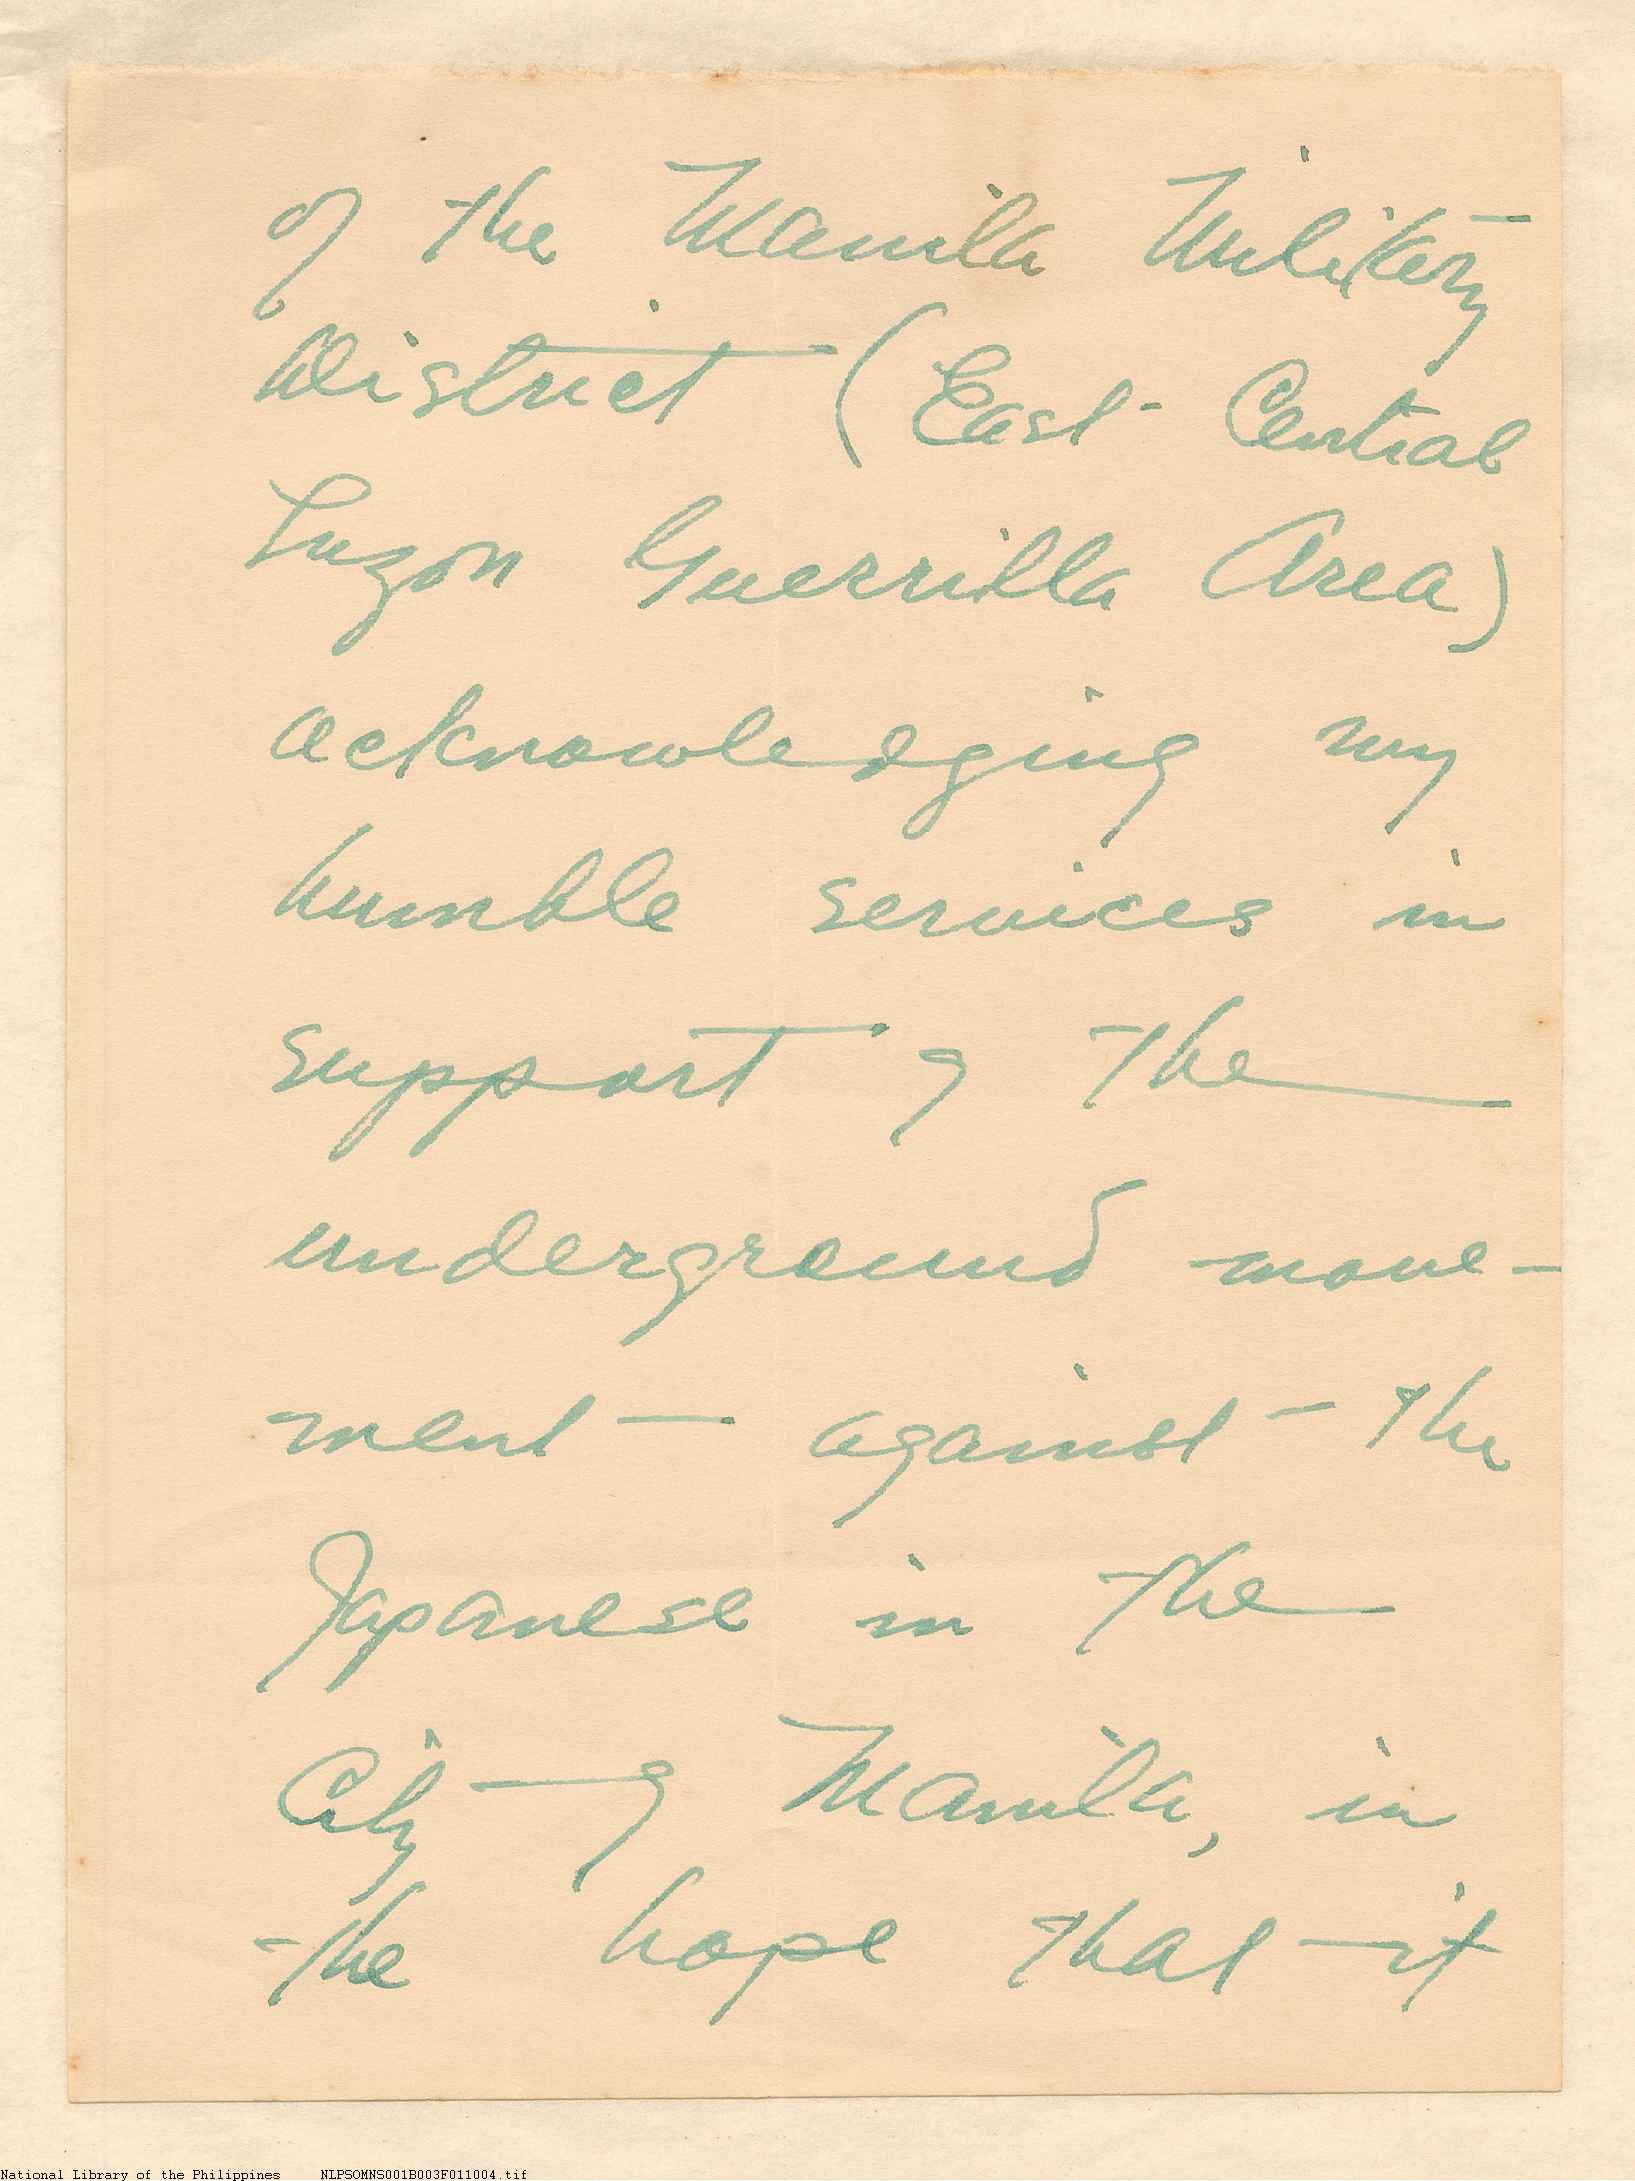 of the Manila Military
District (East Central
Luzon Guerrilla Area)
acknowledging my
humble services in
support of the
underground move-
ment against the
Japanese in the
City of Manila, in
the hope that it
National Library of the Philippines NLPSOMNS001B003F011004.tif